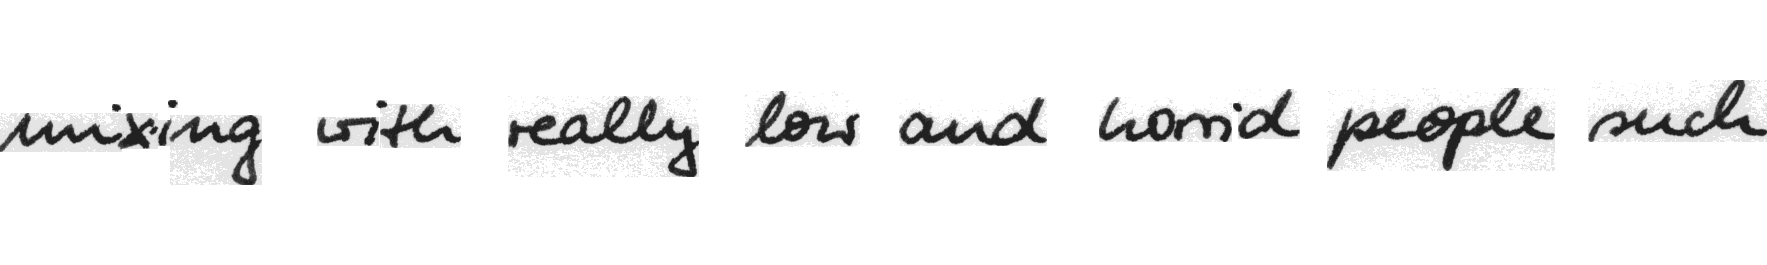 mixing with really low and horrid people such